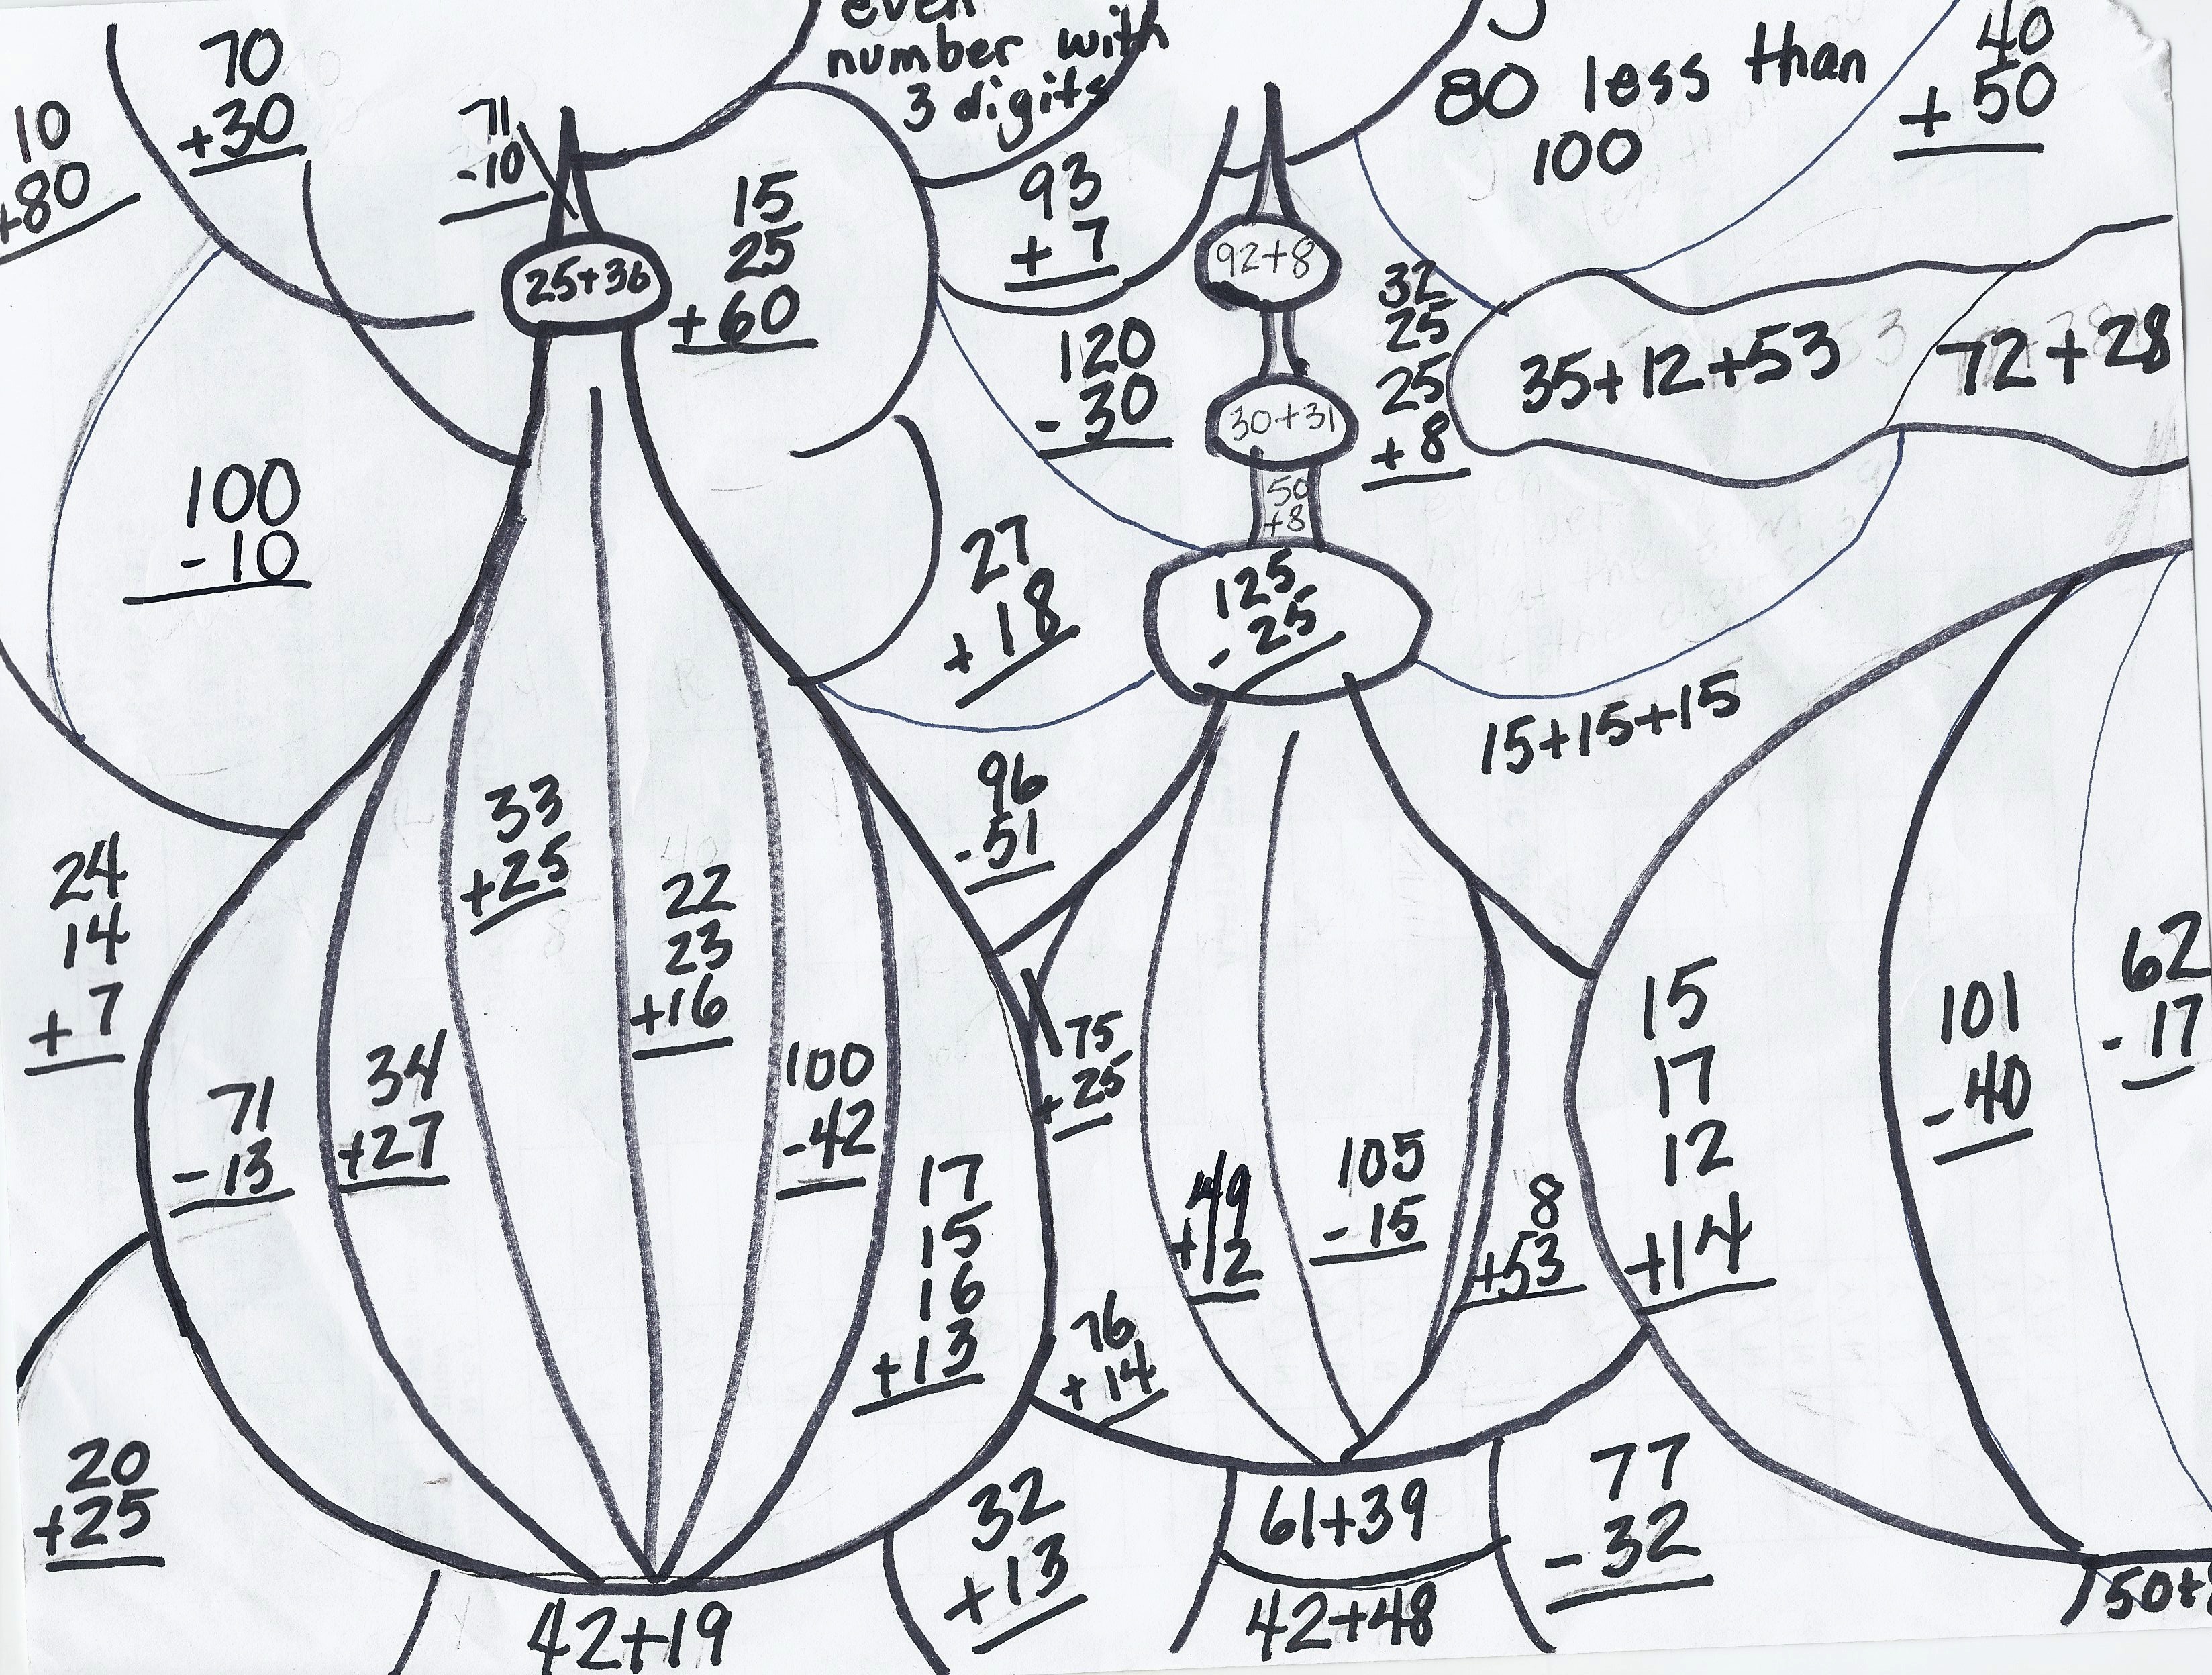 even
number with
3 digits
80 less than
100
40
+ 50
70
+30
10
+80
71
-10
15
25
+60
93
+ 7
25+36
92+8
32
25
25
+ 8
120
- 30
30+31
35+12+53
72+28
50
+8
100
- 10
27
+ 18
125
- 25
15+15+15
96
- 51
33
+25
22
23
+16
24
14
+ 7
34
+27
71
- 13
100
-42
17
15
16
+13
75
+ 25
49
+12
105
- 15
8
+53
15
17
12
+14
101
- 40
62
- 17
76
+ 14
20
+25
32
+13
61+39
77
- 32
42+19
42+48
50+